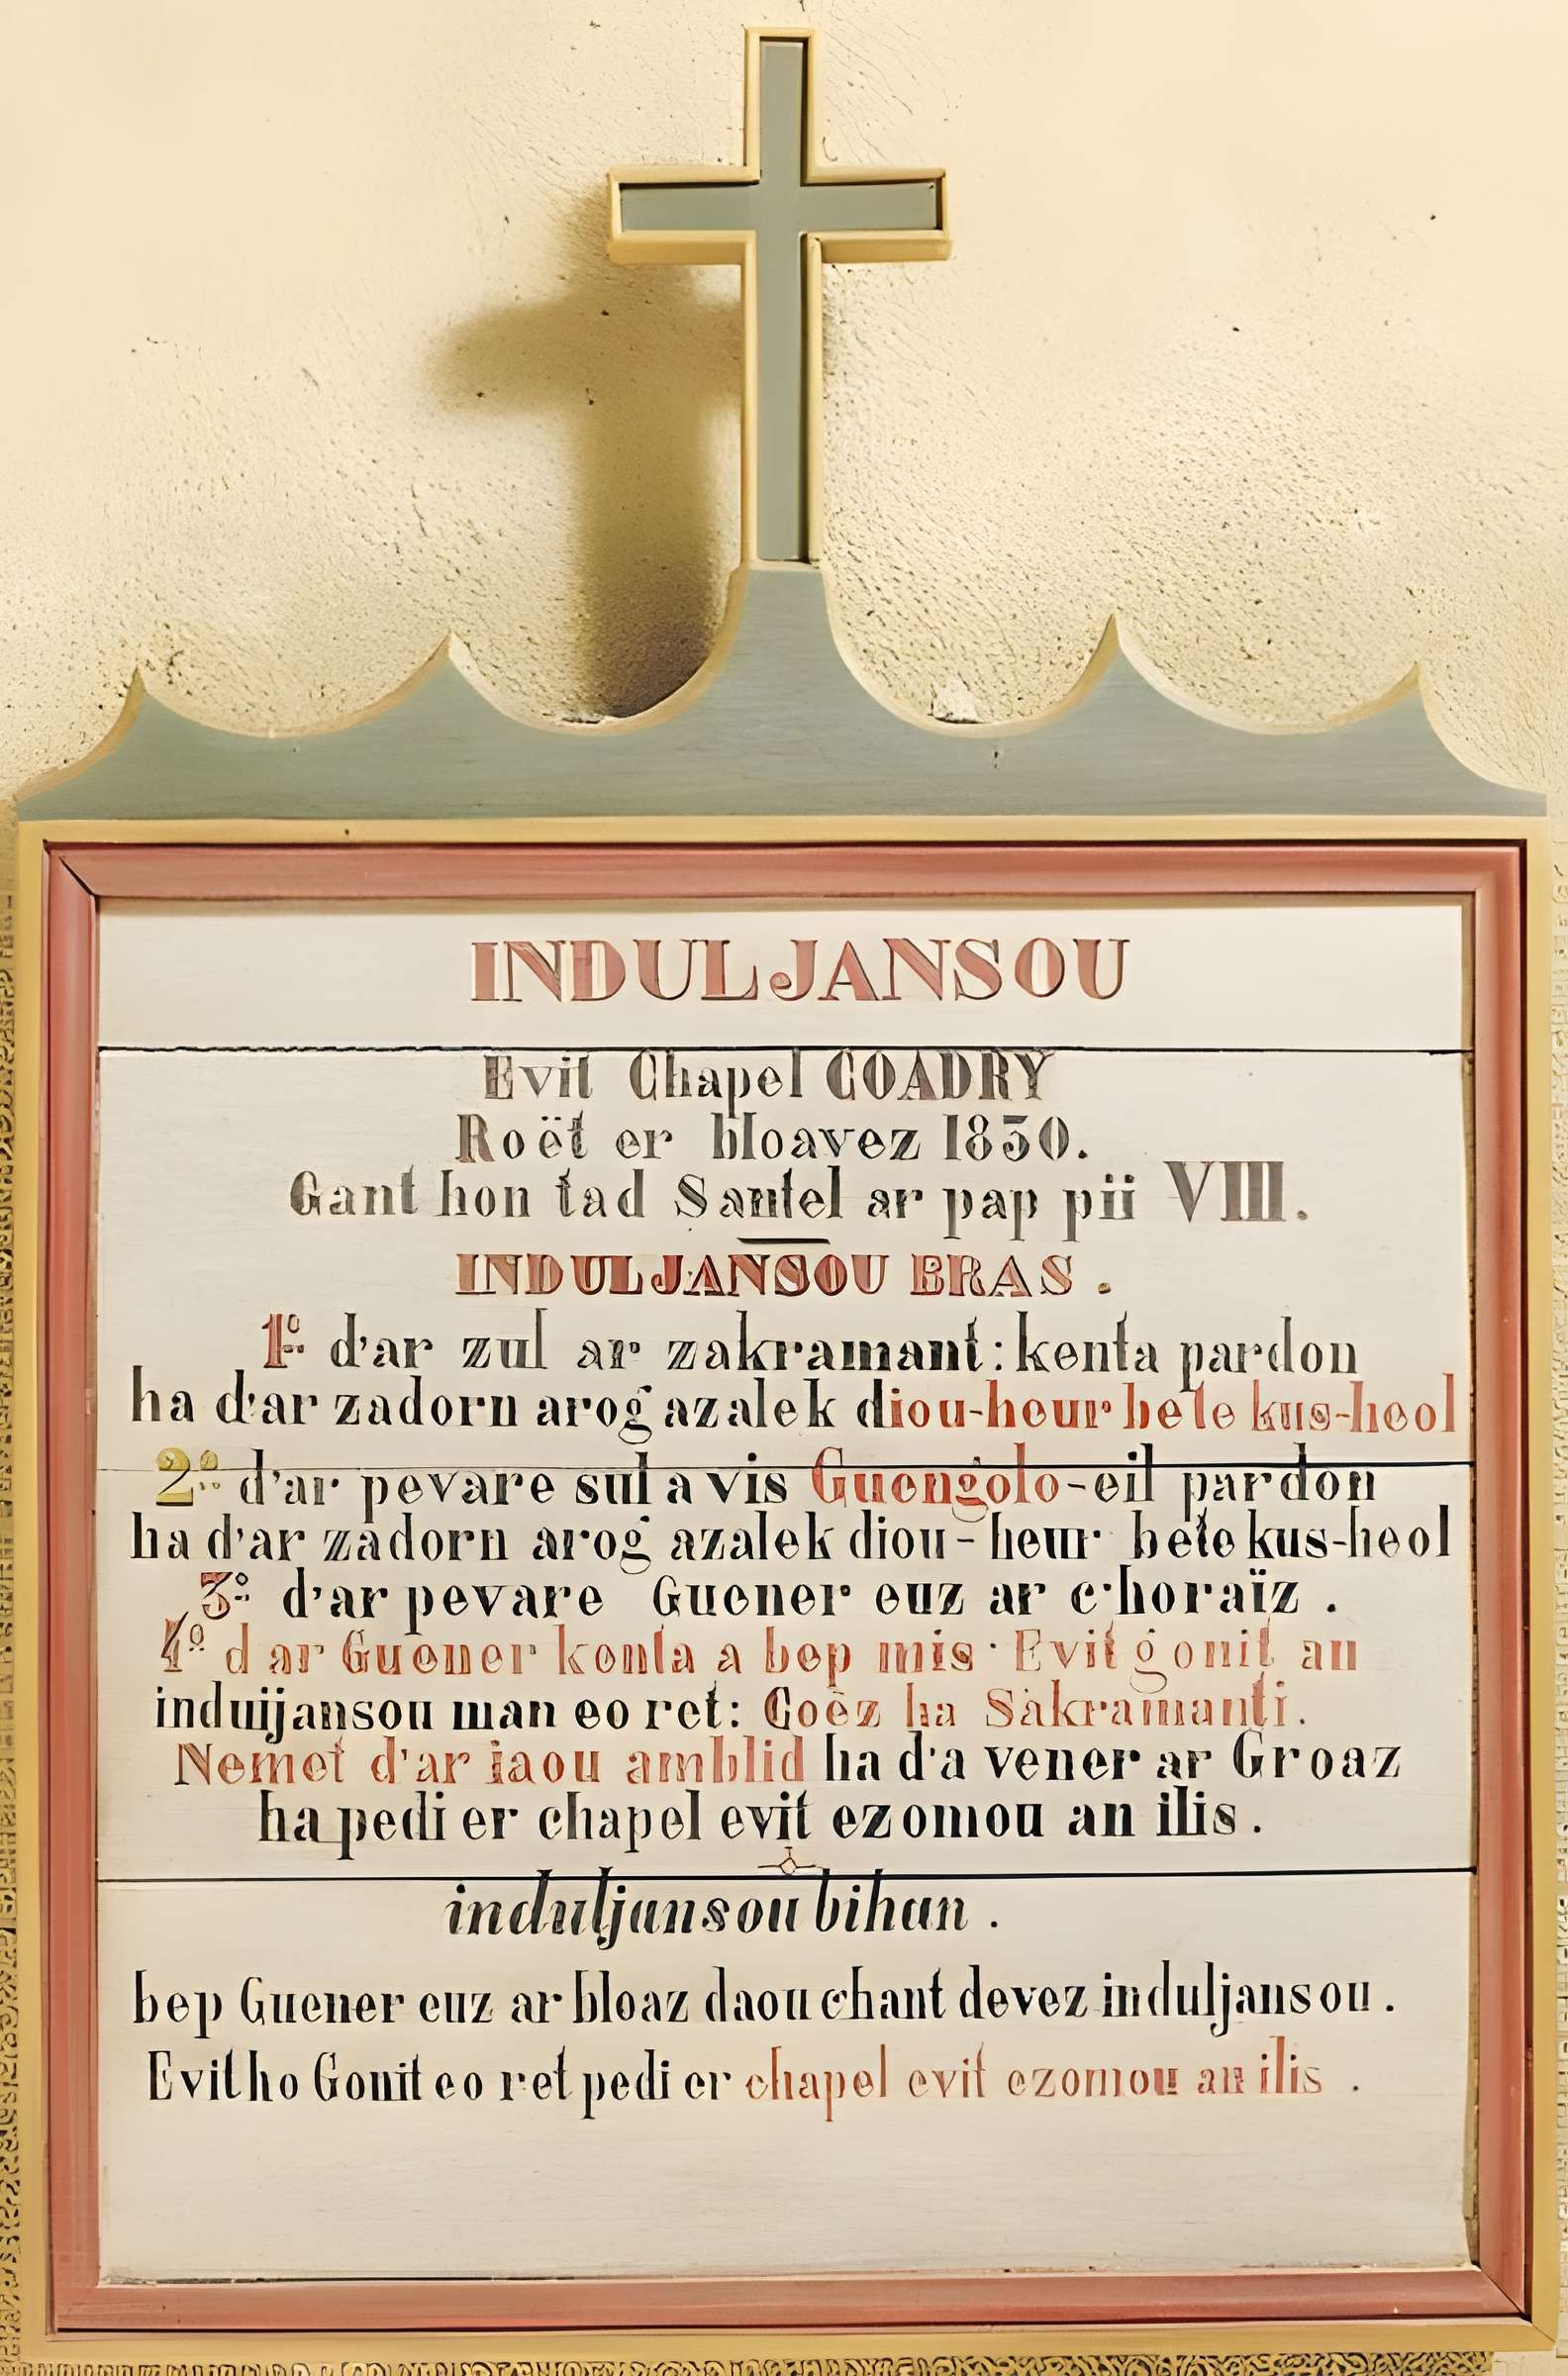 INDULJANSOU
Evit Chapel COADRY
Roët er bloavez 1830.
Gant hon tad Santel ar pap pii VIII.
INDULJANSOU BRAS.
1º d'ar zul ar zakramant: kenta pardon
ha d'ar zadorn arog azalek diou-heur bete kus-heol
2º d'ar pevare sul a vis Guengolo-eil pardon
ha d'ar zadorn arog azalek diou-heur bete kus-heol
3º d'ar pevare Guener euz ar c'horaïz.
4º d ar Guener kenta a bep mis. Evit gonit an
induijansou man eo ret: Goëz ha Sakramanti.
Nemet d'ar iaou amblid ha d'a vener ar Groaz
ha pedi er chapel evit ezomou an ilis.
induljansou bihan.
bep Guener euz ar bloaz daou chant devez induljansou.
Evit ho Gonit eo ret pedi er chapel evit ezomou an ilis.